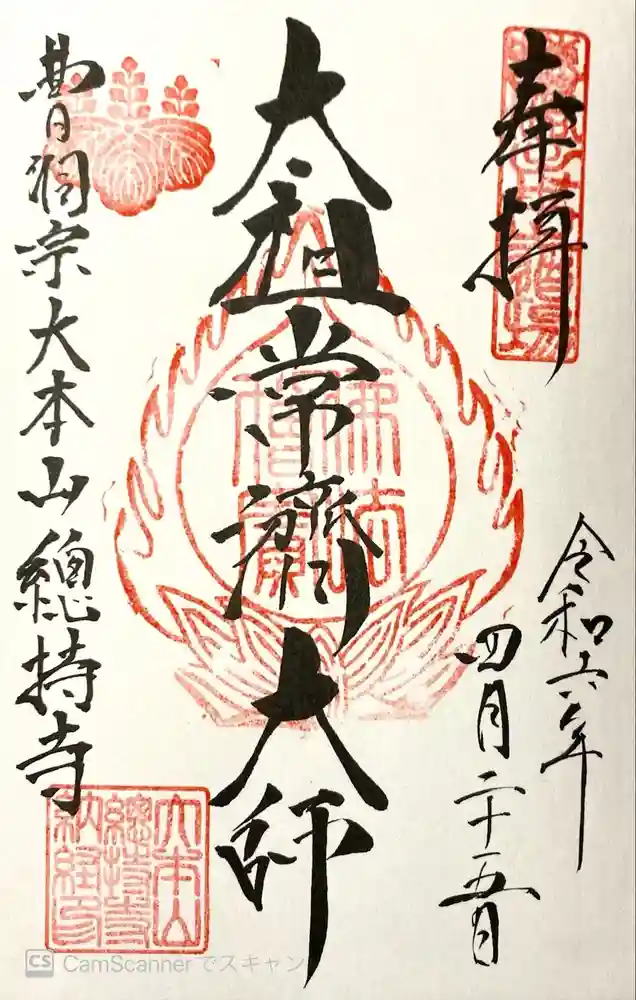 奉拝
令和六年
四月二十五日
大祖常濟大師
曹洞宗大本山總持寺
佛法僧寳
大本山
總持寺
納経印
CS CamScanner でスキャン